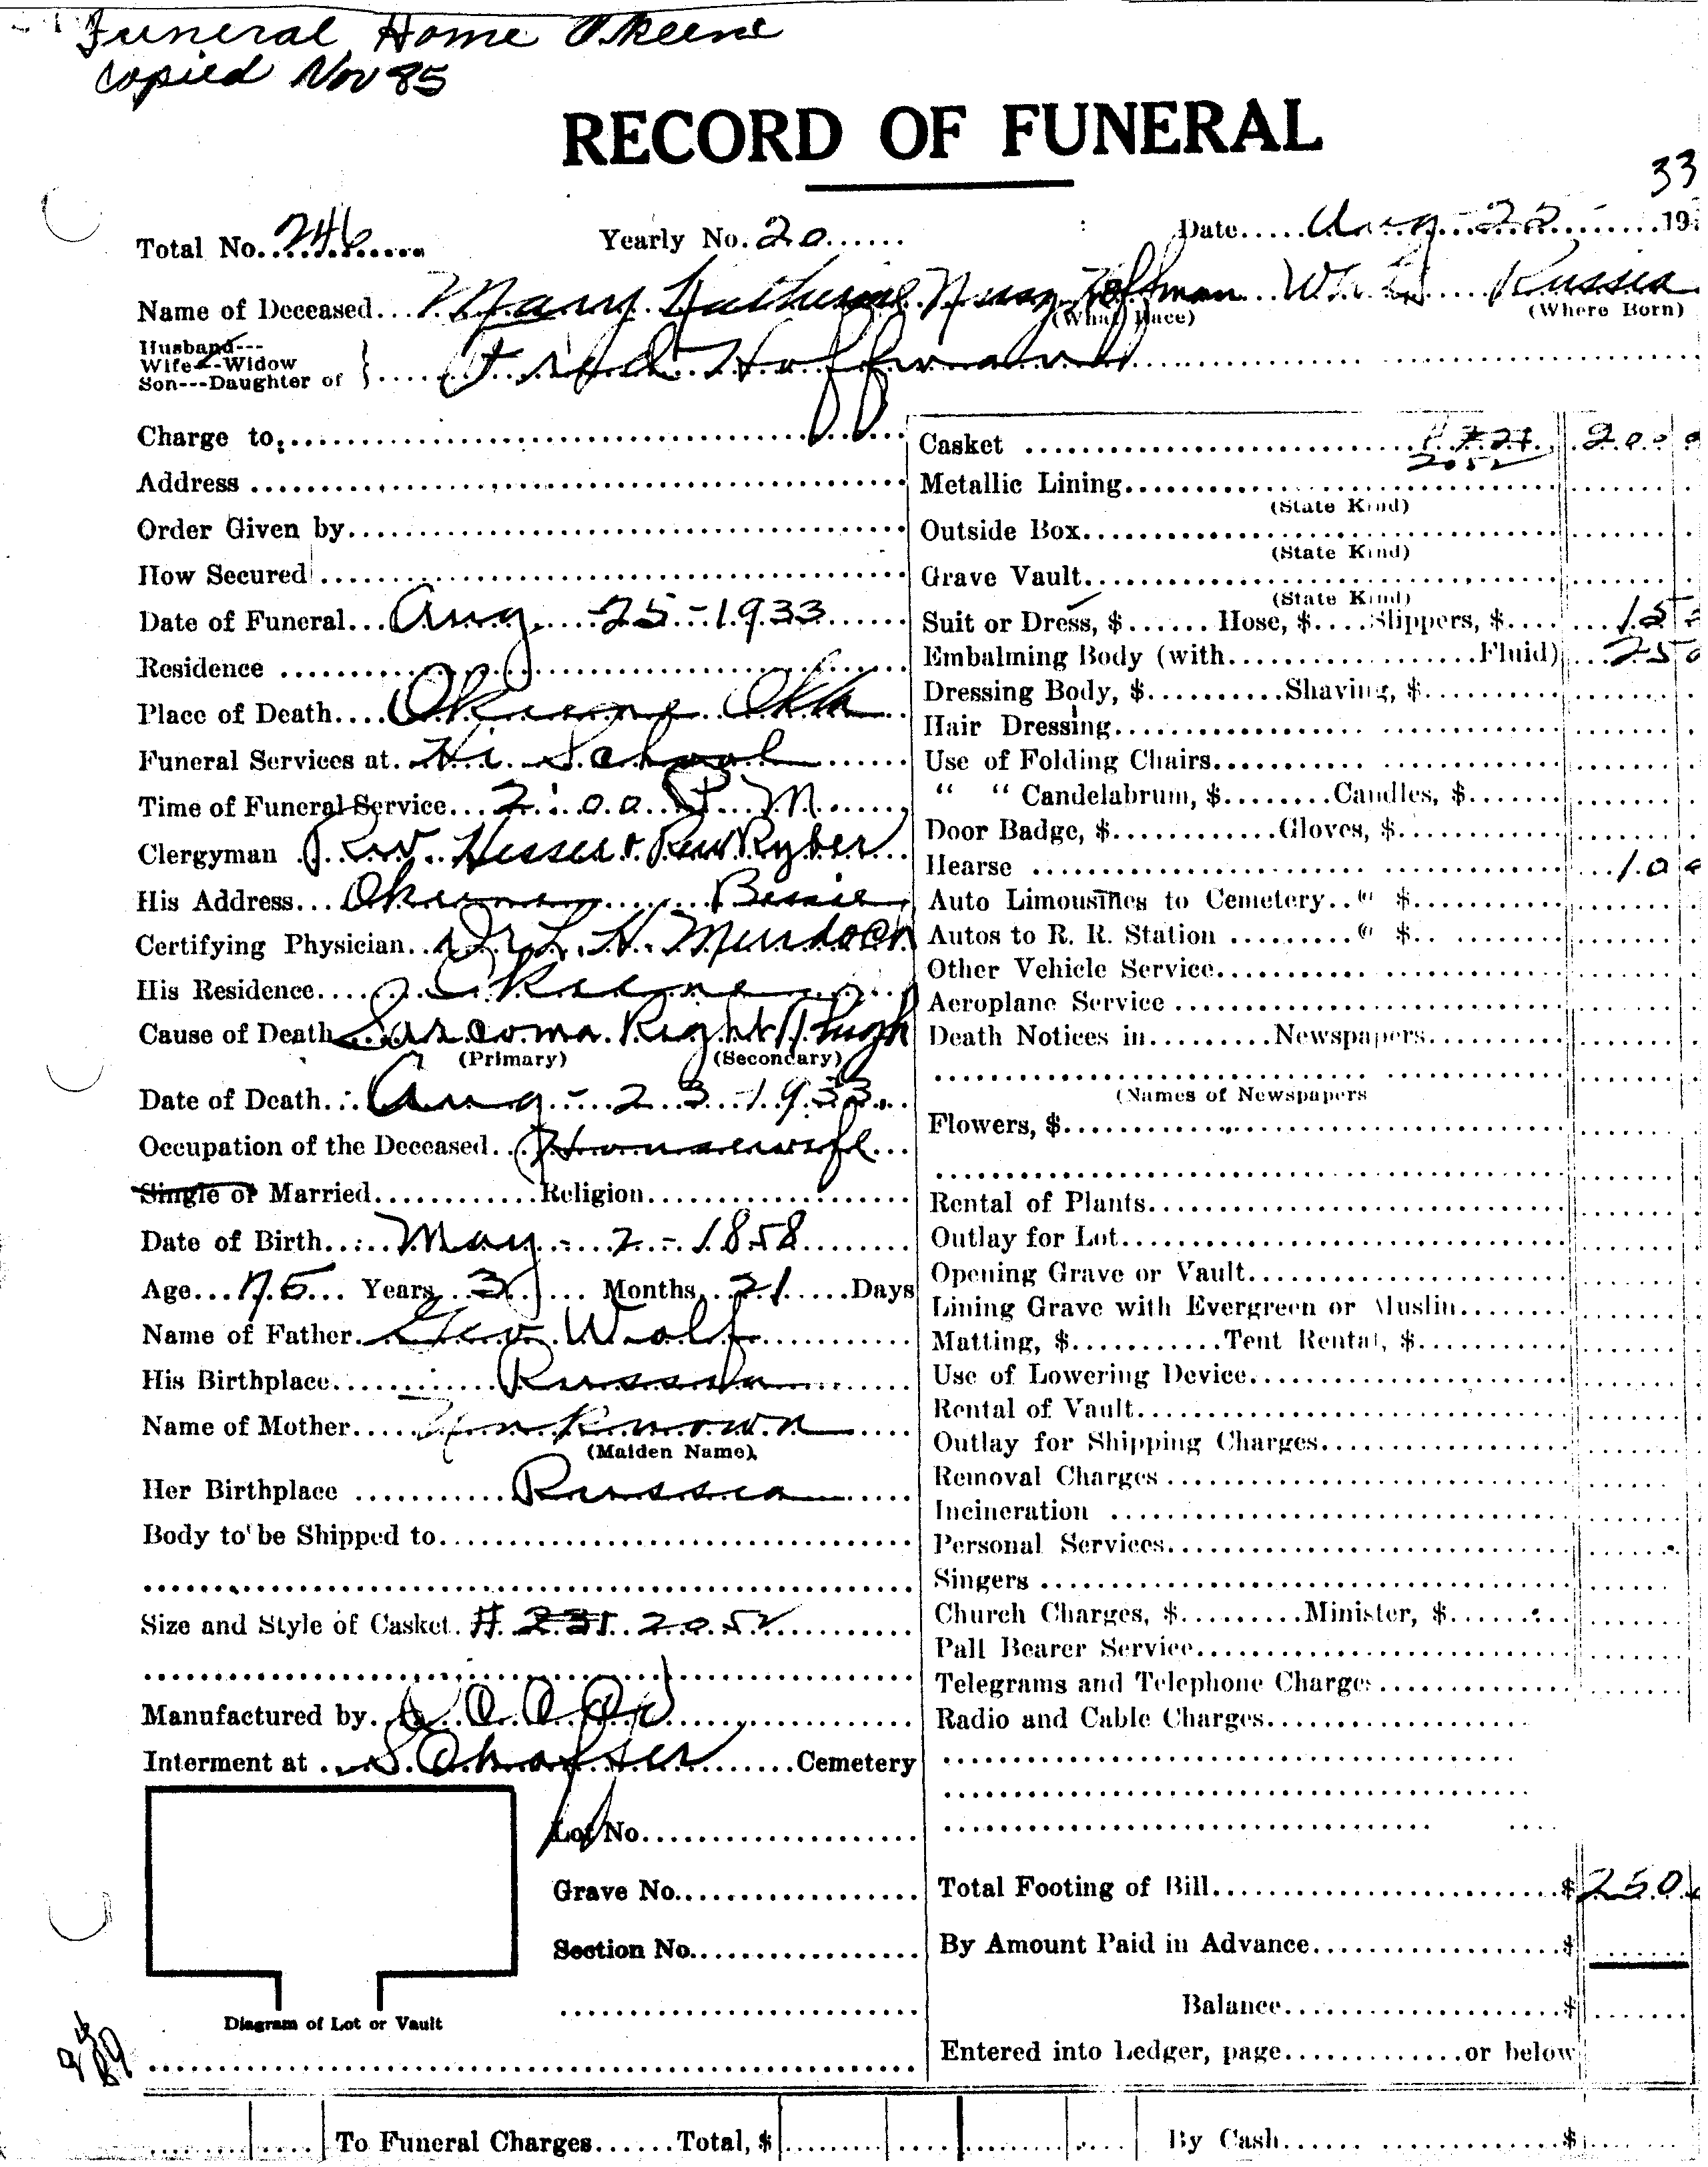 Funeral Home Okeene
Copied Nov 85
RECORD OF FUNERAL
33
Total No. 246 Yearly No. 20 Date Aug - 25 - 19
Name of Deceased Mary Katherine Hoffman Russia
(What Race) (Where Born)
Husband---
Wife---Widow
Son---Daughter of } Fred Hoffman
Charge to,
Address
Order Given by
How Secured
Date of Funeral Aug - 25 - 1933
Residence
Place of Death Okeene Okla
Funeral Services at Hi School
Time of Funeral Service 2:00 P M
Clergyman Rev. Hesser & Rev Ryber
His Address Okeene Bessie
Certifying Physician Dr L. H. Murdoch
His Residence Okeene
Cause of Death Sarcoma Right Thigh
(Primary) (Secondary)
Date of Death Aug - 23 - 1933
Occupation of the Deceased Housewife
Single or Married Religion
Date of Birth May - 2 - 1858
Age 75 Years 3 Months 21 Days
Name of Father Geo. Wolf
His Birthplace Russia
Name of Mother Unknown
(Maiden Name)
Her Birthplace Russia
Body to be Shipped to
Size and Style of Casket # 231 2052
Manufactured by
Interment at Schaffer Cemetery
Lot No
Grave No.
Section No.
Diagram of Lot or Vault
Casket 200
2052
Metallic Lining
(State Kind)
Outside Box
(State Kind)
Grave Vault
(State Kind)
Suit or Dress, $ Hose, $ Slippers, $ 15
Embalming Body (with Fluid) 25
Dressing Body, $ Shaving, $
Hair Dressing
Use of Folding Chairs
" " Candelabrum, $ Candles, $
Door Badge, $ Gloves, $
Hearse 10
Auto Limousines to Cemetery @ $
Autos to R. R. Station @ $
Other Vehicle Service
Aeroplane Service
Death Notices in Newspapers
(Names of Newspapers
Flowers, $
Rental of Plants
Outlay for Lot
Opening Grave or Vault
Lining Grave with Evergreen or Muslin
Matting, $ Tent Rental, $
Use of Lowering Device
Rental of Vault
Outlay for Shipping Charges
Removal Charges
Incineration
Personal Services
Singers
Church Charges, $ Minister, $
Pall Bearer Service
Telegrams and Telephone Charges
Radio and Cable Charges
Total Footing of Bill $ 250
By Amount Paid in Advance $
Balance $
Entered into Ledger, page or below
To Funeral Charges Total, $ By Cash $